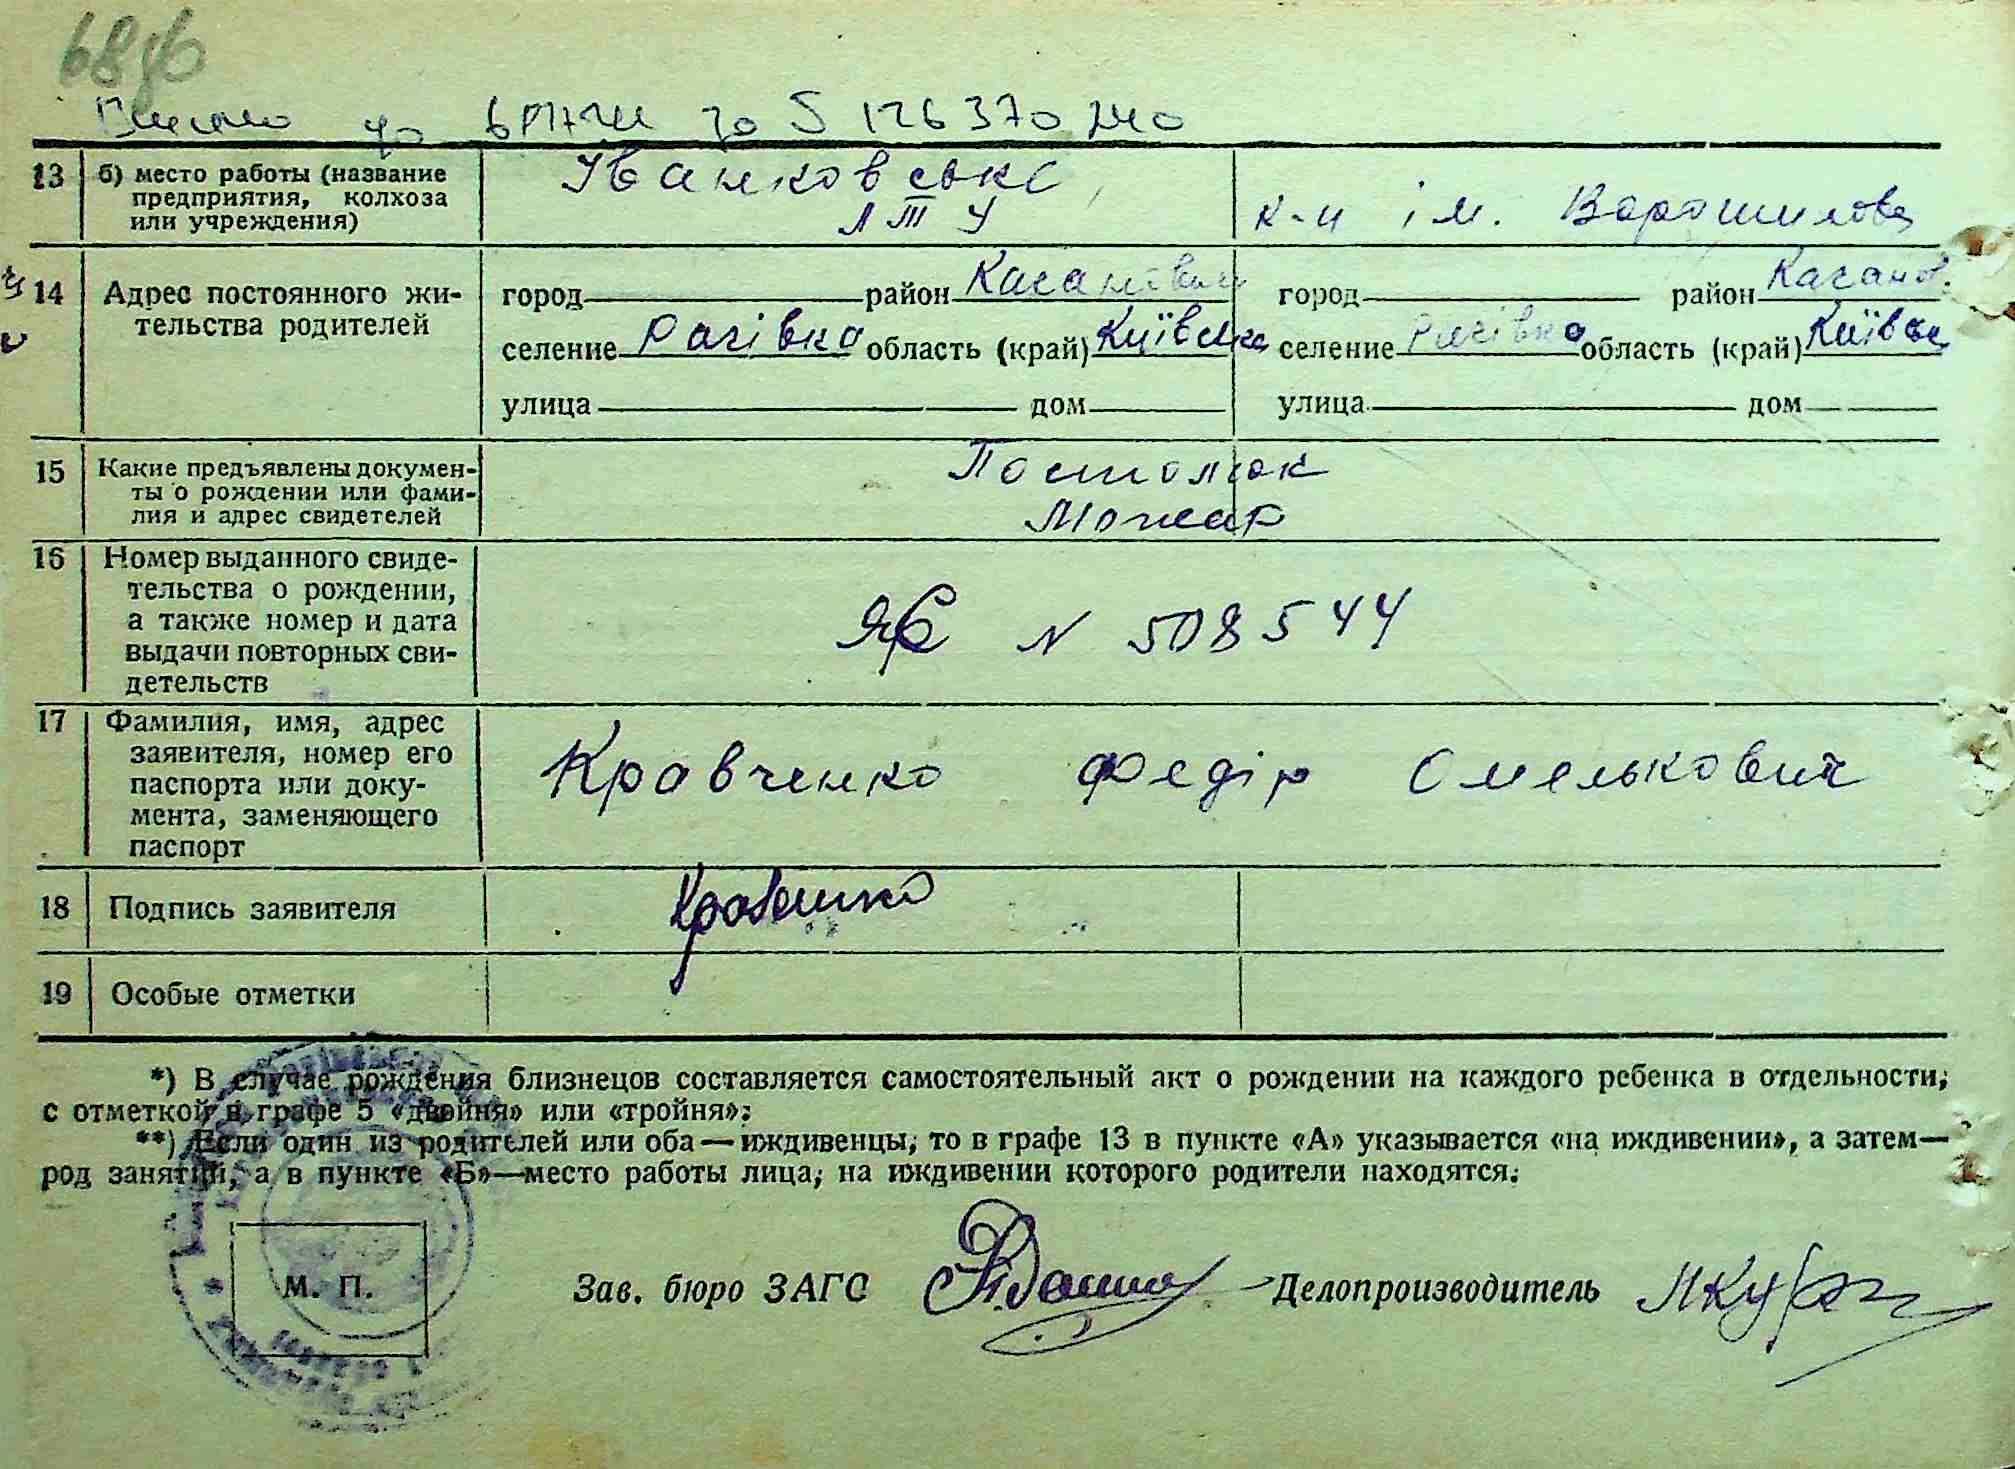 68 зв
Внесено до ВРАЦІ за № 126370240
13 б) место работы (название предприятия, колхоза или учреждения)
Іванковське ЛТУ
к-п ім. Ворошилова
14 Адрес постоянного жи-
тельства родителей
город район Каганович город район Каганов.
селение Рагівка область (край) Київська селение Рагівка область (край) Київська
улица дом улица дом
15 Какие предъявлены докумен-
ты о рождении или фами-
лия и адрес свидетелей
Постолюк
Можар
16 Номер выданного свиде-
тельства о рождении,
а также номер и дата
выдачи повторных сви-
детельств
N 508544
17 Фамилия, имя, адрес
заявителя, номер его
паспорта или доку-
мента, заменяющего
паспорт
Кравченко Федір Омелькович
18 Подпись заявителя
Кравченко
19 Особые отметки
*) В случае рождения близнецов составляется самостоятельный акт о рождении на каждого ребенка в отдельности;
с отметкой в графе 5 «двойня» или «тройня»;
**) Если один из родителей или оба—иждивенцы; то в графе 13 в пункте «А» указывается «на иждивении», а затем—
род занятий; а в пункте «Б»—место работы лица; на иждивении которого родители находятся.
М. П.
Зав. бюро ЗАГС Делопроизводитель